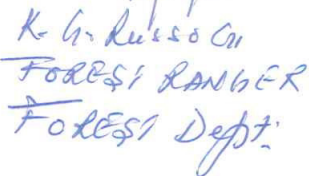 K. G. Russo
FOREST RANGER
FOREST Dept: